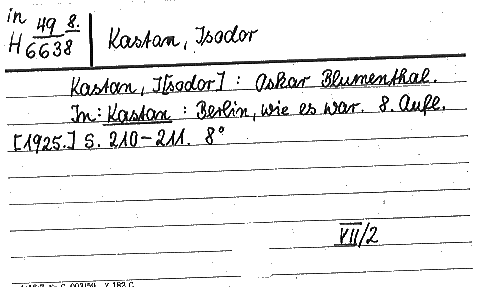 in 49 8.
H 6638
Kastan, Isodor
Kastan, I[sodor] : Oskar Blumenthal.
In: Kastan : Berlin, wie es war. 8. Aufl.
[1925.] S. 210-211. 8°
VII/2